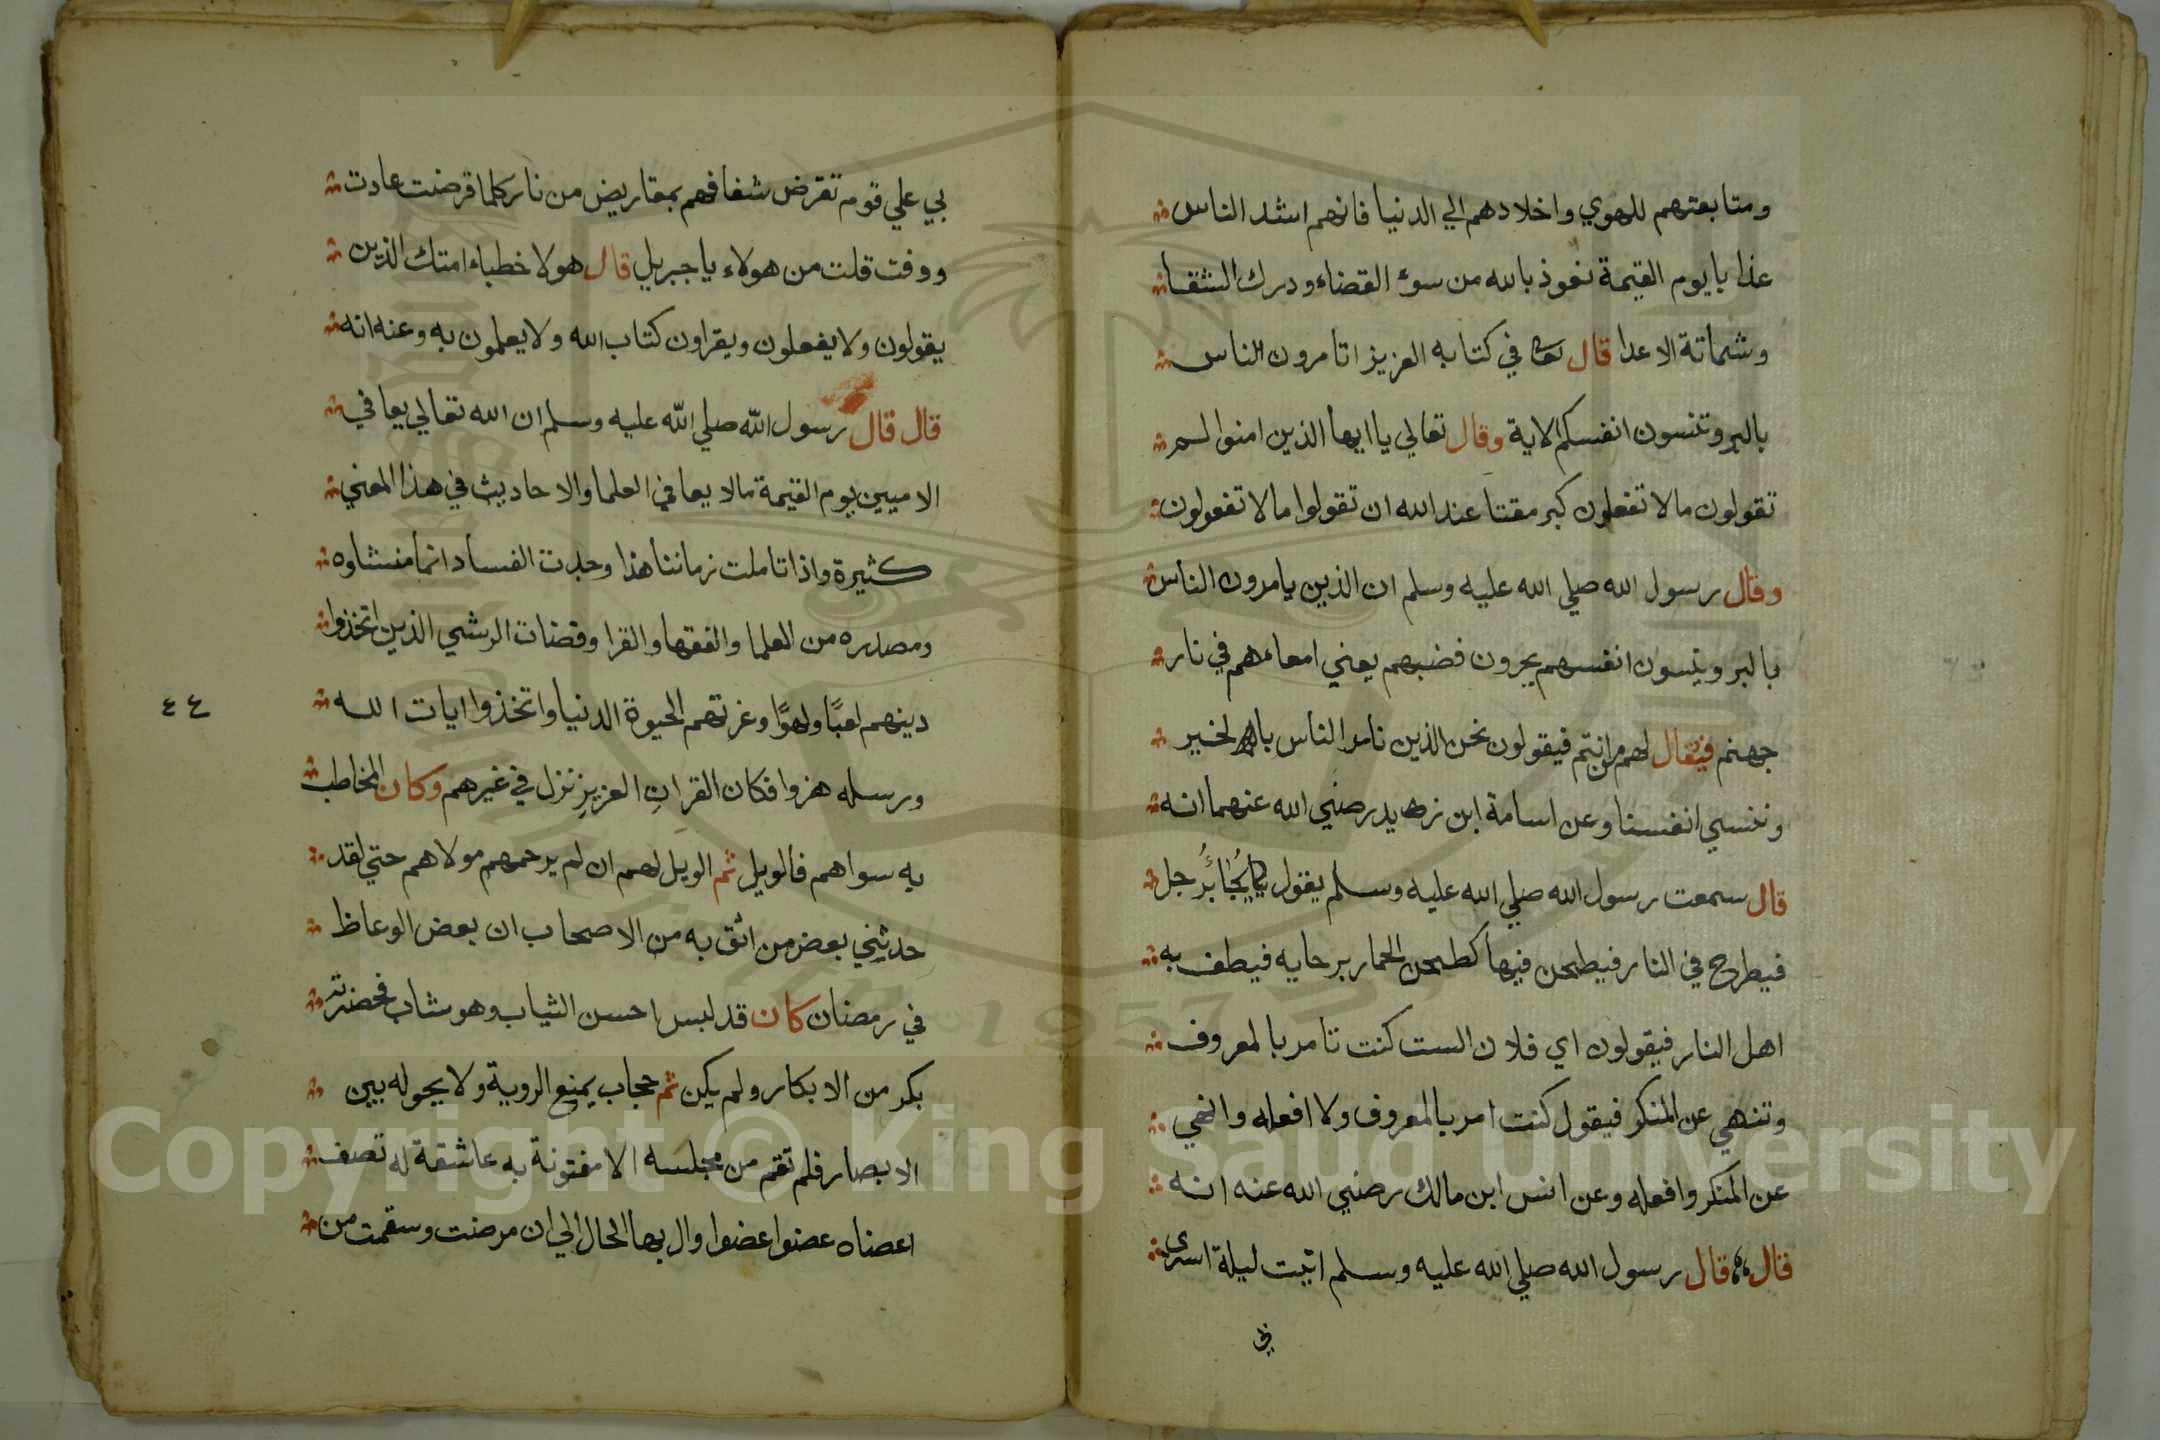 ومتابعتهم للهوي واخلادهم الي الدنيا فانهم اشد الناس
عذابا يوم القيمة نعوذ بالله من سوء القضاء ودرك الشقا
وشماتة الاعدا قال تعالى في كتابه العزيز اتامرون الناس
بالبر وتنسون انفسكم الاية وقال تعالي يا ايها الذين امنوا لم
تقولون مالا تفعلون كبر مقتا عند الله ان تقولوا مالا تفعولون
وقال رسول الله صلي الله عليه وسلم ان الذين يامرون الناس
بالبر وينسون انفسهم يجرون قضبهم يعني امعاءهم في نار
جهنم فيقال لهم من انتم فيقولون نحن الذين نامر الناس بالخير
وننسي انفسنا وعن اسامة ابن زيد رضي الله عنهما انه
قال سمعت رسول الله صلي الله عليه وسلم يقول يُجَائُ برجل
فيطرح في النار فيطحن فيها كطحن الحمار برحايه فيطف به
اهل النار فيقولون اي فلان الست كنت تامر بالمعروف
وتنهي عن المنكر فيقول كنت امر بالمعروف ولا افعله وانهي
عن المنكر وافعله وعن انس ابن مالك رضي الله عنه انه
قال قال رسول الله صلي الله عليه وسلم اتيت ليلة اسرى
بي
بي علي قوم تقرض شفافهم بمقاريض من نار كلما قرضت عادت
ووفت قلت من هولاء يا جبريل قال هولا خطباء امتك الذين
يقولون ولا يفعلون ويقراون كتاب الله ولا يعلمون به وعنه انه
قال قال رسول اللّه صلي اللّه عليه وسلم ان الله تعالي يعافي
الاميين يوم القيمة مالا يعافي العلما والاحاديث في هذا المعني
كثيرة واذا تاملت زماننا هذا وجدت الفساد انما منشاوه
ومصدره من العلما والفقها والقرا وقضات الرشي الذين اتخذوا
دينهم لعبًا ولهوًا وغرتهم الحيوة الدنيا واتخذوا ايات الله
٤٤
ورسله هزوا فكان القران العزيز نزل في غيرهم وكان المخاطب
به سواهم فالويل ثم الويل لهم ان لم يرحمهم مولاهم حتي لقد
حدثني بعض من اثق به من الاصحاب ان بعض الوعاظ
في رمضان كان قد لبس احسن الثياب وهو شاب فحضرته
بكر من الابكار ولم يكن ثم حجاب يمنع الروية ولا يحوله بين
الابصار فلم تقم من مجلسه الا مفتونة به عاشقة له تصف
اعضاه عضوا عضوا وال بها الحال الي ان مرضت وسقمت من
Copyright © King Saud University
1957